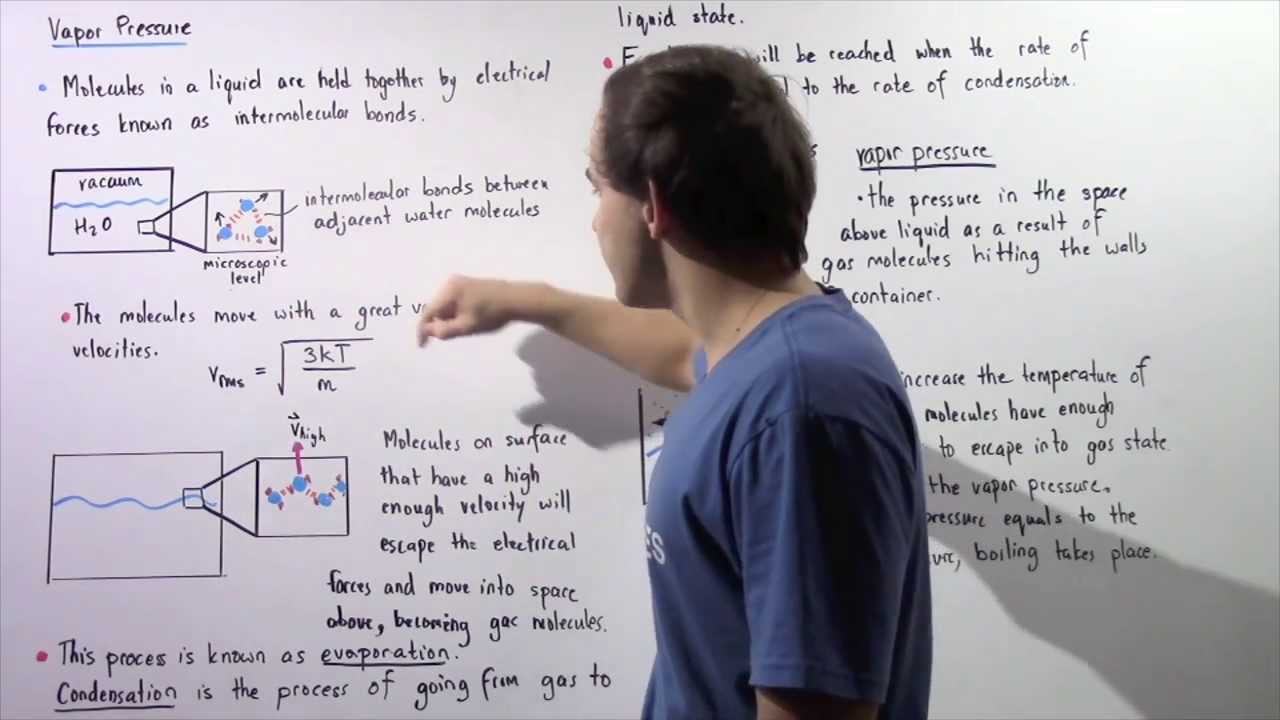 Vapor Pressure
• Molecules in a liquid are held together by electrical
forces known as intermolecular bonds.
vacuum
H₂O
intermolecular bonds between
adjacent water molecules
microscopic
level
• The molecules move with a great
velocities.
Vrms = √(3kT/m)
Vhigh
Molecules on surface
that have a high
enough velocity will
escape the electrical
forces and move into space
above, becoming gas molecules.
• This process is known as evaporation.
Condensation is the process of going from gas to
liquid state.
• will be reached when the rate of
to the rate of condensation.
vapor pressure
• the pressure in the space
above liquid as a result of
gas molecules hitting the walls
container.
increase the temperature of
molecules have enough
to escape into gas state.
the vapor pressure.
pressure equals to the
boiling takes place.